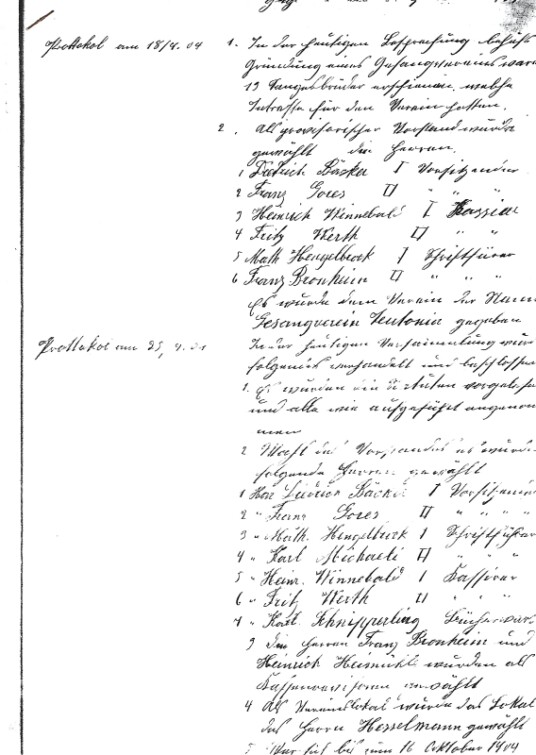 Prottokol am 18/4. 04
1. In der heutigen Besprechung behufs
Gründung eines Gesangvereins waren
13 Sangesbrüder erschienen welche
Intresse für den Verein hatten.
2. Als provisorischer Vorstand wurde
gewählt die Herren.
1 Diedrich Bäcker I Vorsitzender
2 Franz Gores II " " "
3 Heinrich Winnebald I Kassier
4 Fritz Werth II " "
5 Math Hengelbrock I Schriftfürer
6 Franz Bronheim II " " "
Es wurde dem Verein der Name
Gesangverein Teutonia gegeben
Prottokol am 4.
In der heutigen Versammlung wurde
folgendes verhandelt und beschlossen
1. Es wurden die Statuten vorgelesen
und alle wie aufgeführt angenom
men
2 Wahl des Vorstandes es wurde
folgende Herren gewählt
1 Herr Diedrich Bäcker I Vorsitzender
2 " Franz Gores II " " "
3 " Math. Hengelbrock I Schriftführer
4 " Karl Michaeli II " " "
5 " Heinr. Winnebald I Kassirer
6 " Fritz Werth II " "
7 " Karl Schnipperling Bücherwart
3 Die Herren Franz Bronheim und
Heinrich wurden als
Kassenrevisoren gewählt
4 Als Vereinslokal wurde das Lokal
des Herrn Hesselmann gewählt
5 bis zum 16 Oktober 1904